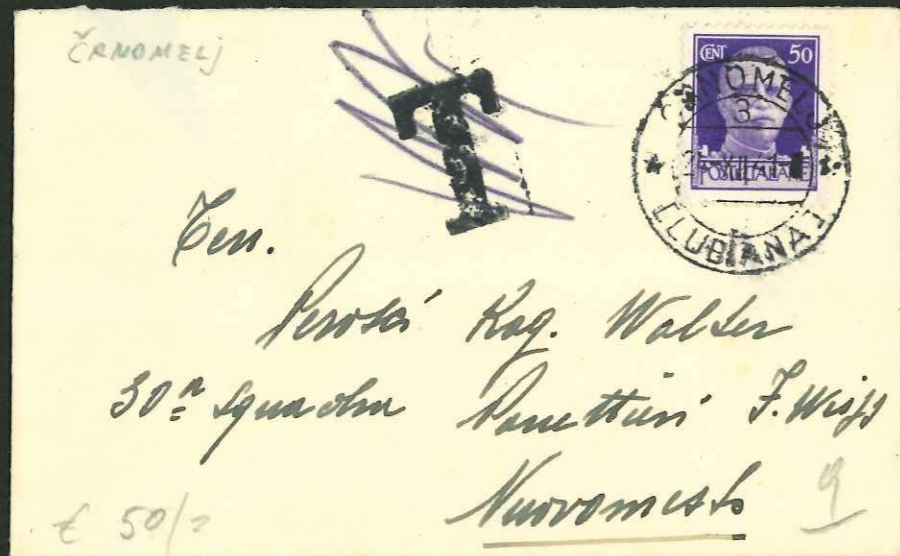 ČRNOMELJ
T
CENT 50
POSTE ITALIANE
ČRNOMELJ
3
XII 41
(LUBIANA)
Ten.
Perossi Rag. Walter
30ª Squadra Panettieri F. Weiss
Nuovomesto
€ 50/
9